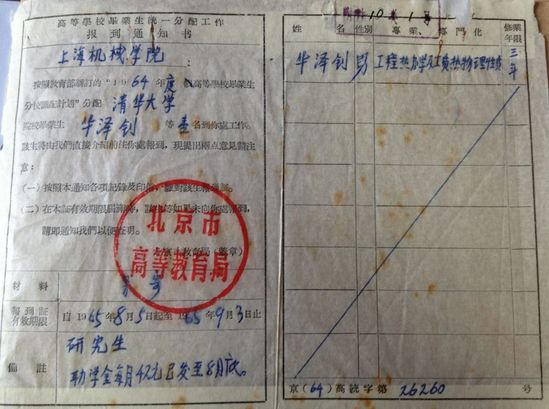 高等學校畢業生統一分配工作
报到通知書
上海机械学院
按照教育部制訂的"1964年度高等學校畢業生
分校調配計劃"分配 清华大学
院校畢業生 华泽钊 等壹名到你處工作。
該生將由我們直接介紹前往你處報到,現提出兩点意見請注
意:
(一)按照本通知各項記錄及印
(二)在本証有效期限屆滿時,該生等如果未向你處報到,
請卽通知我們以便查明。
北京市
高等教育局
材料
報到証
有效期限
自1965年8月5日起至1965年9月3日止
備註
研究生
助学金每月42元已发至8月底。
10 1号
姓名 性別 專業、專門化 修業年限
华泽钊 男 工程热力学及工质热物理性质 三年
京(64)高統字第26260号